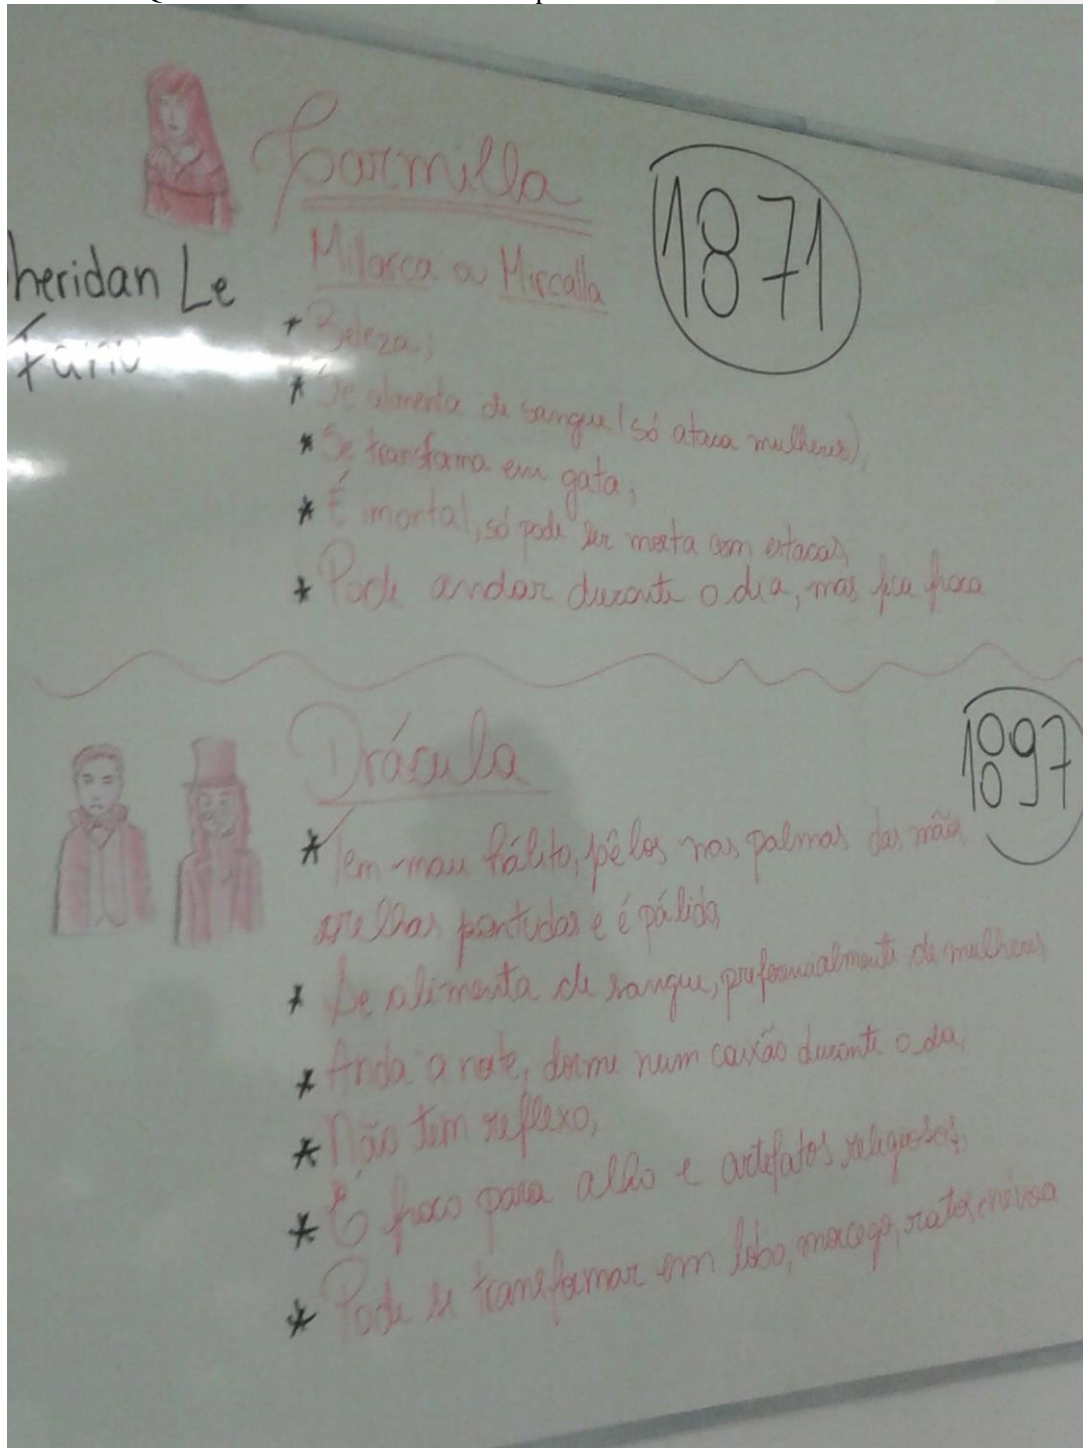 Carmilla
1871
Milarca ou Mircalla
heridan Le
Fanu
* Beleza;
* Se alimenta de sangue (só ataca mulheres);
* Se transforma em gata;
* É imortal, só pode ser morta com estacas
* Pode andar durante o dia, mas fica fraca
Drácula
1897
* Tem mau hálito, pêlos nas palmas das mãos
orelhas pontudas e é pálido
* Se alimenta de sangue, preferencialmente de mulheres
* Anda a noite, dorme num caixão durante o dia,
* Não tem reflexo,
* É fraco para alho e artefatos religiosos,
* Pode se transformar em lobo, morcego, ratos e névoa